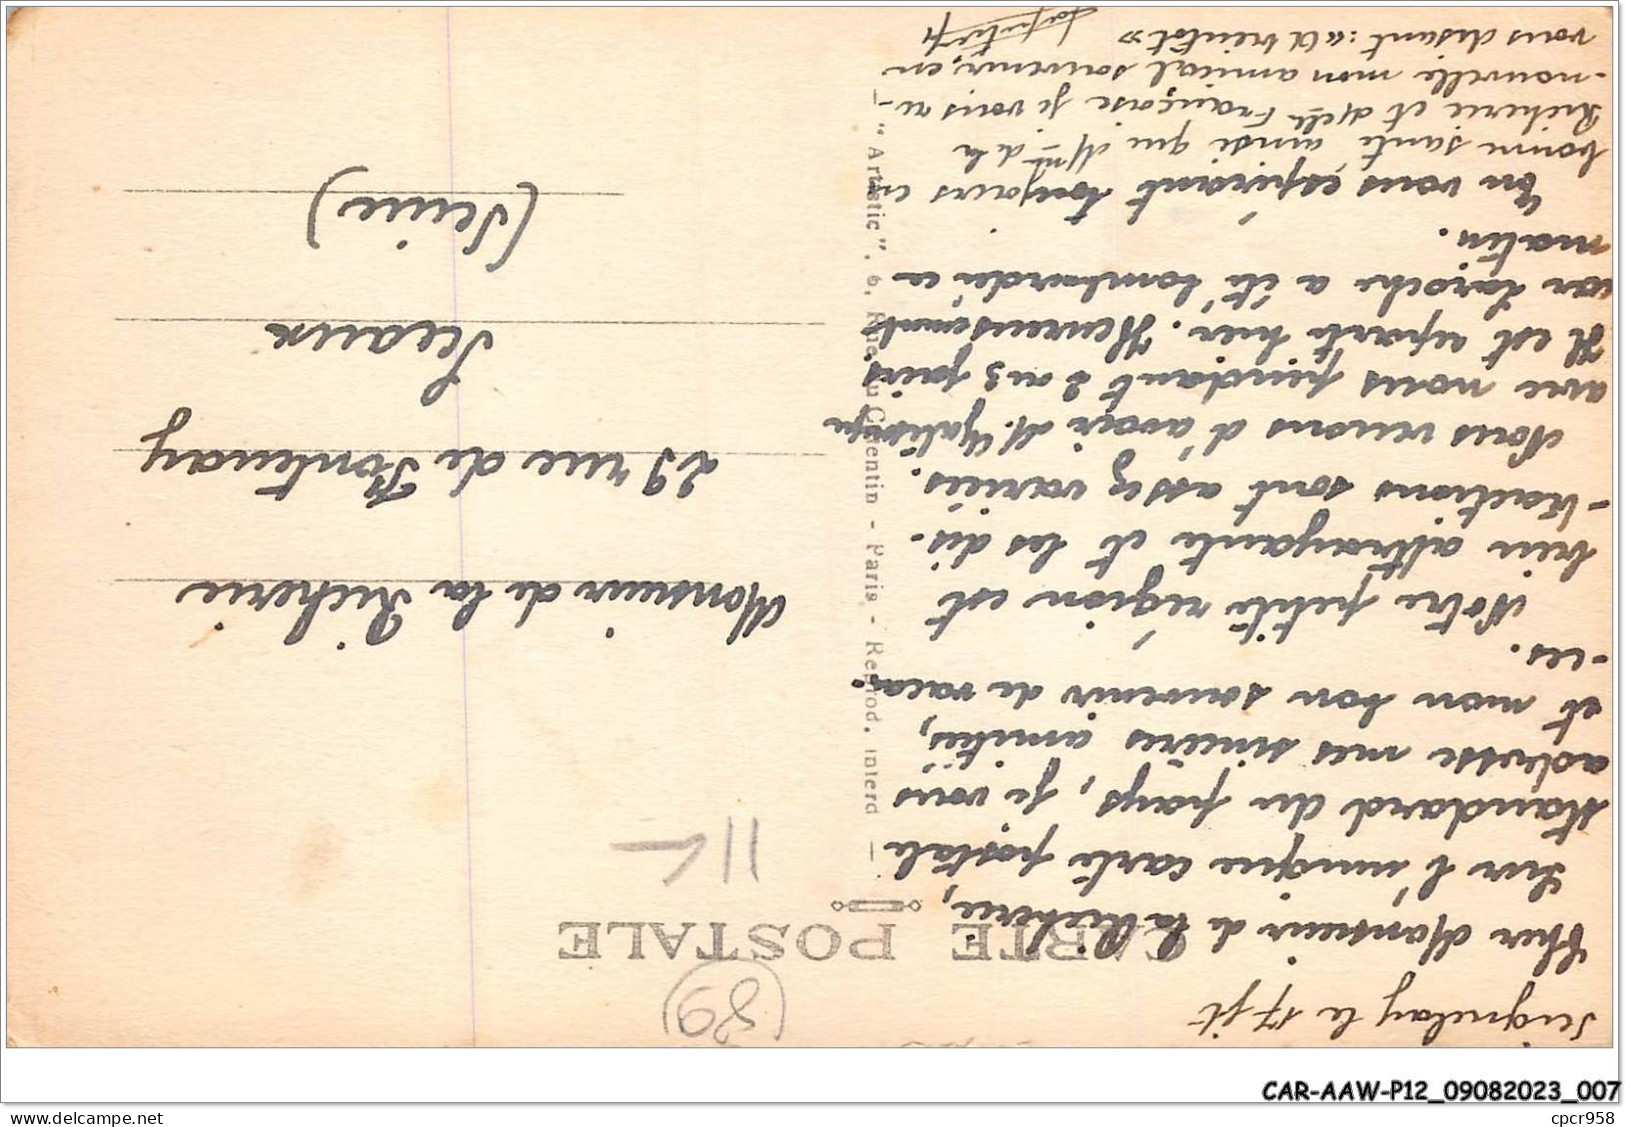 Seignelay le 17 jt
Cher Monsieur de la Richerie,
Sur l'unique carte postale
standard du pays, je vous
adresse mes sincères amitiés,
et mon bon souvenir de vacan
-ces.
Notre petite région est
bien attrayante et les dis-
-tractions sont assez variées.
Nous venons d'avoir M.
avec nous pendant 2 ou 3 jours
Il est reparti hier. Heureusement
car Laroche a été bombardée ce
matin.
En vous espérant toujours en
bonne santé ainsi que Mme de la
Richerie et Melle Françoise je vous re-
-nouvelle mon amical souvenir, en
vous disant : «A bientôt»
(89)
CARTE POSTALE
11 L
Monsieur de la Richerie
29 rue de Fontenay
Sceaux
(Seine)
— "Artistic", 6, Rue du Cotentin - Paris - Reprod. interd —
CAR-AAW-P12_09082023_007
delcampe.net
cpcr958